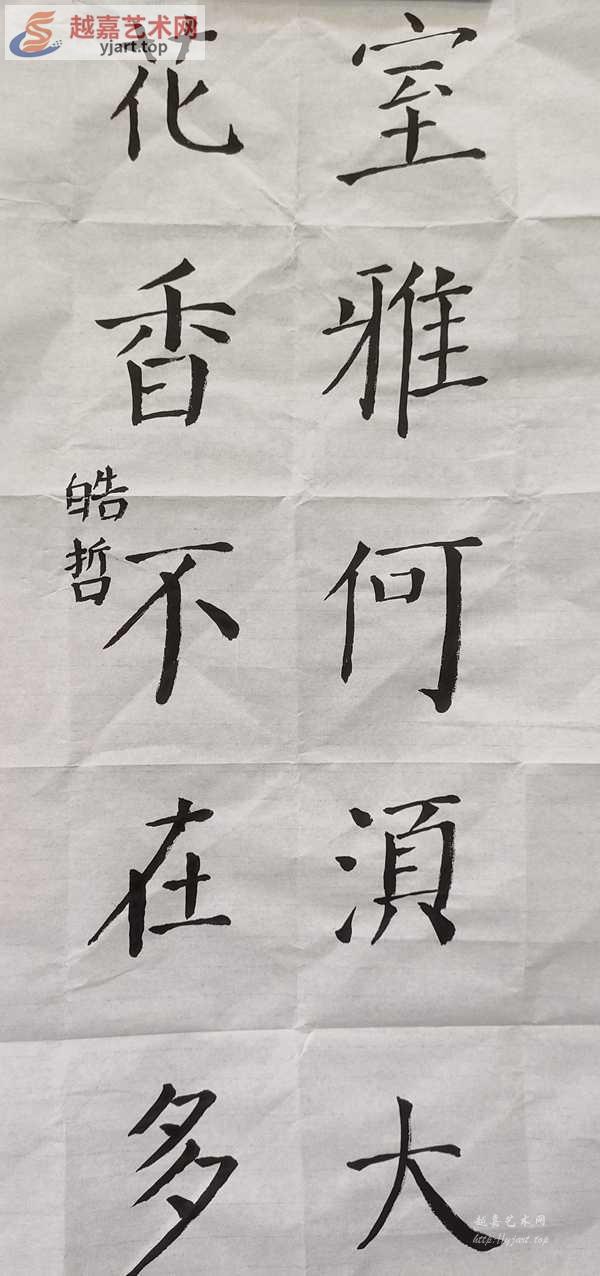 越嘉艺术网
yjart.top
室雅何須大
花香不在多
皓哲
越嘉艺术网
http://yjart.top